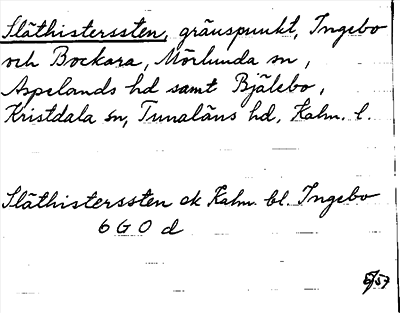 Släthistersten, gränspunkt, Ingebo
och Bockara, Mörlunda sn,
Aspelands hd samt Bjälebo,
Kristdala sn, Tunaläns hd, Kalm. l.
Släthistersten ek Kalm. bl. Ingebo
6 G O d
5/57